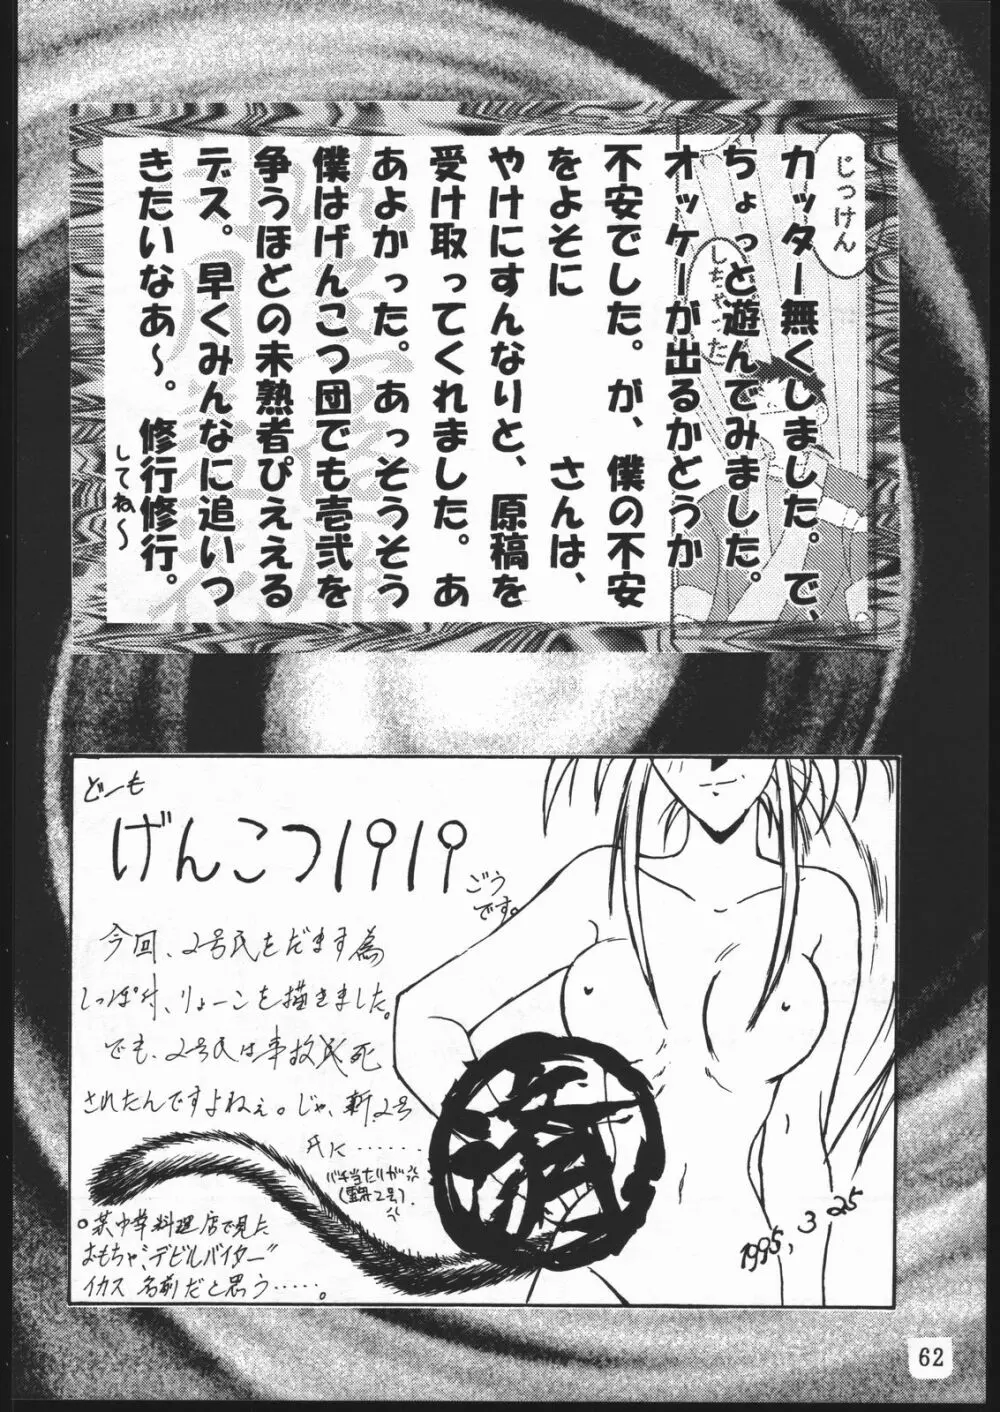 じっけん
しちゃった
カッター無くしました。で、
ちょっと遊んでみました。
オッケーが出るかどうか
不安でした。が、僕の不安
をよそに　　　さんは、
やけにすんなりと、原稿を
受け取ってくれました。あ
あよかった。あっそうそう
僕はげんこつ団でも壱弐を
争うほどの未熟者ぴええる
デス。早くみんなに追いつ
きたいなあ～。修行修行。
してね～
どーも
げんこつ1919
ごう
です。
今回、2号氏をだます為
しっぽ付、りょーこを描きました。
でも、2号氏は事故死
されたんですよねぇ。じゃ、新2号
氏に……
バチ当たりが
(霊界2号)。
済
。某中華料理店で見た
おもちゃ“デビルバイター”
イカス名前だと思う……。
1995,3 25
62